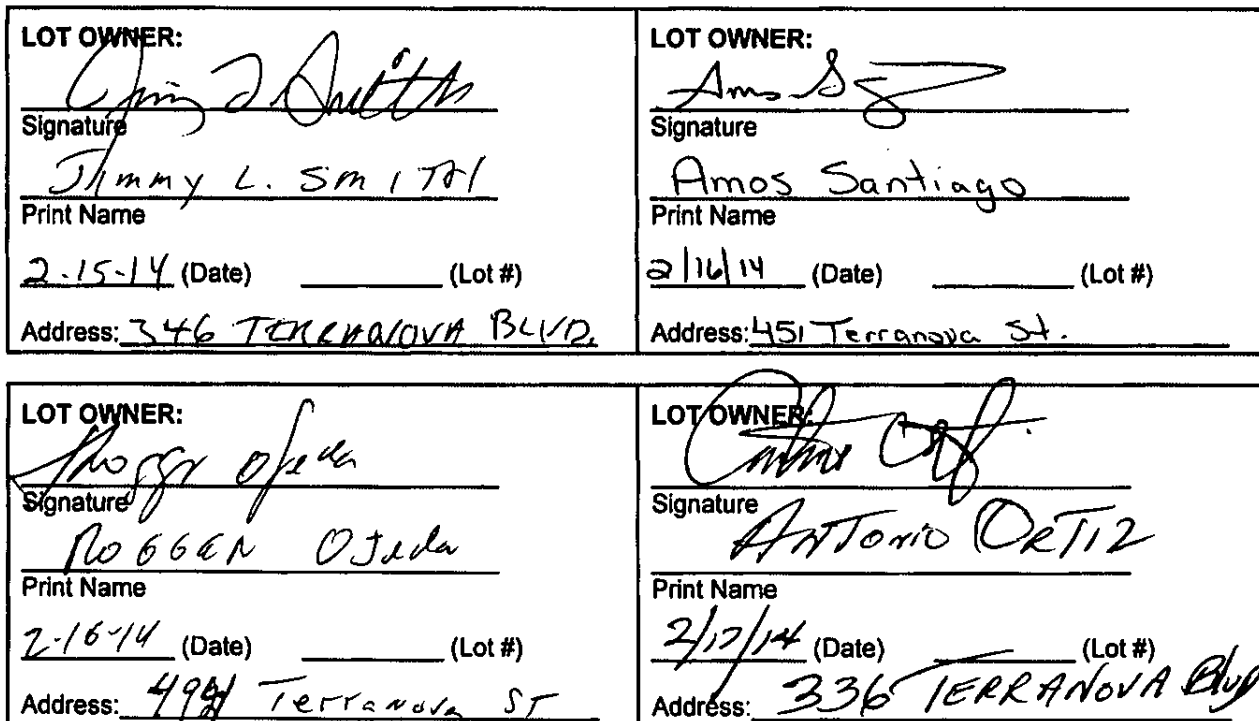 LOT OWNER:
Jimmy L Smith
Signature
Jimmy L. SmITH
Print Name
2-15-14 (Date) (Lot #)
Address: 346 TERRANOVA BLVD.
LOT OWNER:
Signature
Amos Santiago
Print Name
2/16/14 (Date) (Lot #)
Address: 451 Terranova St.
LOT OWNER:
Ojeda
Signature
Ojeda
Print Name
2-16-14 (Date) (Lot #)
Address: Terranova ST
LOT OWNER:
Signature
ANTonio ORTIZ
Print Name
2/17/14 (Date) (Lot #)
Address: 336 TERRANOVA Blvd